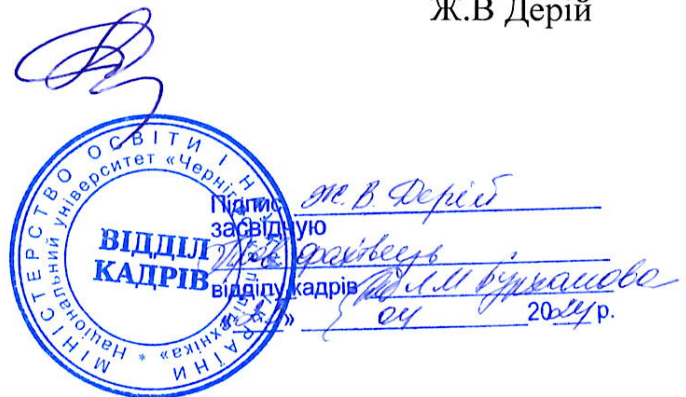 Ж.В Дерій
МІНІСТЕРСТВО ОСВІТИ І НАУКИ УКРАЇНИ
Національний університет «Чернігівська політехніка» *
ВІДДІЛ
КАДРІВ
Підпис Ж.В. Дерій
засвідчую
фахівець
відділу кадрів Л.М
» 04 2024 р.